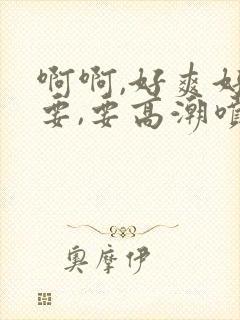 啊啊,好爽好
要,要高潮喷
奥摩伊